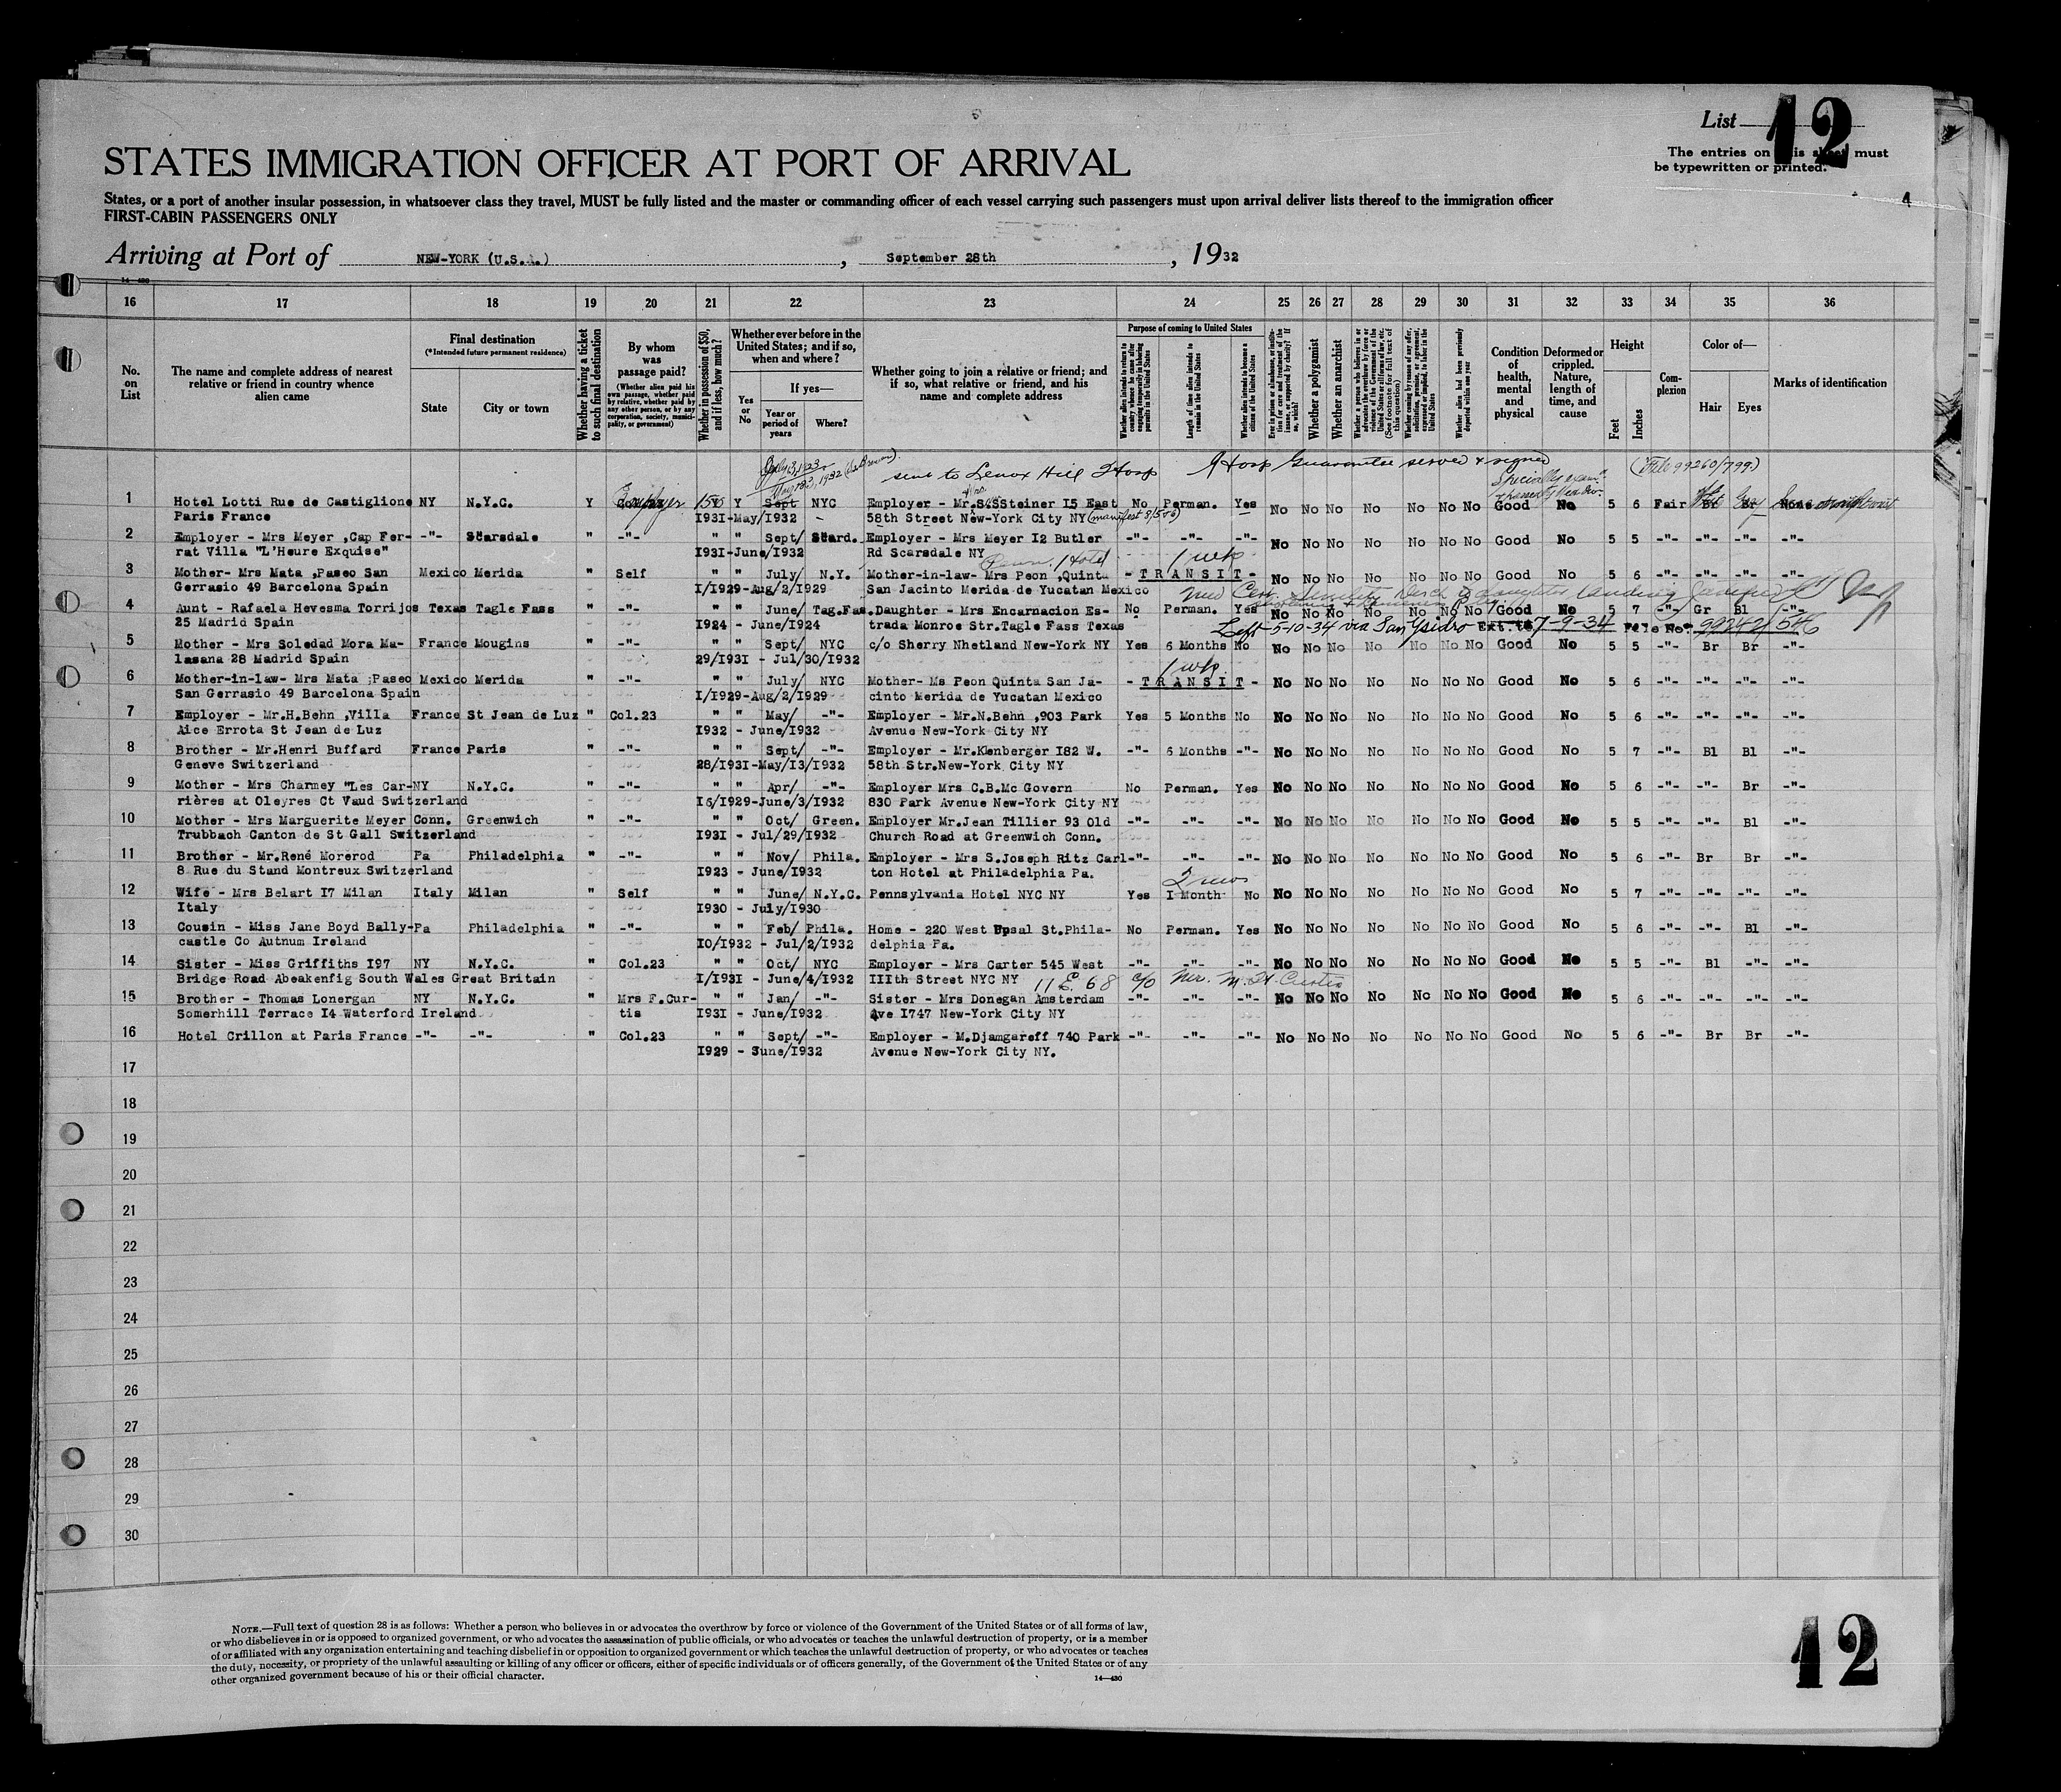 List 12
The entries on this sheet must
be typewritten or printed.
4
STATES IMMIGRATION OFFICER AT PORT OF ARRIVAL
States, or a port of another insular possession, in whatsoever class they travel, MUST be fully listed and the master or commanding officer of each vessel carrying such passengers must upon arrival deliver lists thereof to the immigration officer
FIRST-CABIN PASSENGERS ONLY
Arriving at Port of NEW-YORK (U.S.A.) , September 28th , 1932
14-430
16 17 18 19 20 21 22 23 24 25 26 27 28 29 30 31 32 33 34 35 36
No. on List
The name and complete address of nearest relative or friend in country whence alien came
Final destination
(*Intended future permanent residence)
State
City or town
Whether having a ticket to such final destination
By whom was passage paid?
(Whether alien paid his own passage, whether paid by relative, whether paid by any other person, or by any corporation, society, municipality, or government)
Whether in possession of $50, and if less, how much?
Whether ever before in the United States; and if so, when and where?
Yes or No
If yes—
Year or period of years
Where?
Whether going to join a relative or friend; and if so, what relative or friend, and his name and complete address
Purpose of coming to United States
Whether alien intends to return to country whence he came after engaging temporarily in laboring pursuits in the United States
Length of time alien intends to remain in the United States
Whether alien intends to become a citizen of the United States
Ever in prison or almshouse, or institution for care and treatment of the insane, or supported by charity? If so, which?
Whether a polygamist
Whether an anarchist
(See footnote for full text of this question)
Whether coming by reason of any offer, solicitation, promise, or agreement, expressed or implied, to labor in the United States
Whether alien had been previously deported within one year
Condition of health, mental and physical
Deformed or crippled. Nature, length of time, and cause
Height
Feet
Inches
Complexion
Color of—
Hair
Eyes
Marks of identification
sent to Lenox Hill Hosp Hosp Guarantee served & signed (File 99260/799)
1 Hotel Lotti Rue de Castiglione NY N.Y.C. Y Employer 150 Y Sept NYC Employer - Mr.S.SSteiner I5 East No Perman. Yes No No No No No No No Good No 5 6 Fair
Paris France I93I-May/I932 58th Street New-York City NY
2 Employer - Mrs Meyer ,Cap Fer- -"- Scarsdale " -"- " " Sept/ Scard. Employer - Mrs Meyer I2 Butler -"- -"- -"- No No No No No No No Good No 5 5 -"- -"- -"- -"-
rat Villa "L'Heure Exquise" I93I-June/I932 Rd Scarsdale NY
1 wk
3 Mother- Mrs Mata ,Paseo San Mexico Merida " Self " " July/ N.Y. Mother-in-law- Mrs Peon ,Quinta - T R A N S I T - No No No No No No No Good No 5 6 -"- -"- -"- -"-
Gerrasio 49 Barcelona Spain I/I929-Aug/2/I929 San Jacinto Merida de Yucatan Mexico
4 Aunt - Rafaela Hevesma Torrijos Texas Tagle Fass " -"- " " June/ Tag.Fas. Daughter - Mrs Encarnacion Es- No Perman. Yes No No No No No No No Good No 5 7 -"- Gr Bl -"-
25 Madrid Spain I924 - June/I924 trada Monroe Str.Tagle Fass Texas
Left 5-10-34 via San Ysidro Ext. to 7-9-34 File No. 99242/546
5 Mother - Mrs Soledad Mora Ma- France Mougins " -"- " " Sept/ NYC c/o Sherry Nhetland New-York NY Yes 6 Months No No No No No No No No Good No 5 5 -"- Br Br -"-
lasana 28 Madrid Spain 29/I93I - Jul/30/I932
1 wk
6 Mother-in-law- Mrs Mata ;Paseo Mexico Merida " -"- " " July/ NYC Mother- Ms Peon Quinta San Ja- - T R A N S I T - No No No No No No No Good No 5 6 -"- -"- -"- -"-
San Gerrasio 49 Barcelona Spain I/I929-Aug/2/I929 cinto Merida de Yucatan Mexico
7 Employer - Mr.H.Behn ,Villa France St Jean de Luz " Col.23 " " May/ -"- Employer - Mr.N.Behn ,903 Park Yes 5 Months No No No No No No No No Good No 5 6 -"- -"- -"- -"-
Aice Errota St Jean de Luz I932 - June/I932 Avenue New-York City NY
8 Brother - Mr.Henri Buffard France Paris " -"- " " Sept/ -"- Employer - Mr.Klenberger I82 W. -"- 6 Months -"- No No No No No No No Good No 5 7 -"- Bl Bl -"-
Geneve Switzerland 28/I93I-May/I3/I932 58th Str.New-York City NY
9 Mother - Mrs Charmey "Les Car- NY N.Y.C. " -"- " " Apr/ -"- Employer Mrs C.B.Mc Govern No Perman. Yes No No No No No No No Good No 5 6 -"- -"- Br -"-
rières at Oleyres Ct Vaud Switzerland I6/I929-June/3/I932 830 Park Avenue New-York City NY
10 Mother - Mrs Marguerite Meyer Conn. Greenwich " -"- " " Oct/ Green. Employer Mr.Jean Tillier 93 Old -"- -"- -"- No No No No No No No Good No 5 5 -"- -"- Bl -"-
Trubbach Canton de St Gall Switzerland I93I - Jul/29/I932 Church Road at Greenwich Conn.
11 Brother - Mr.René Morerod Pa Philadelphia " -"- " " Nov/ Phila. Employer - Mrs S.Joseph Ritz Carl- -"- -"- -"- No No No No No No No Good No 5 6 -"- Br Br -"-
8 Rue du Stand Montreux Switzerland I923 - June/I932 ton Hotel at Philadelphia Pa.
2 mos
12 Wife - Mrs Belart I7 Milan Italy Milan " Self " " June/ N.Y.C. Pennsylvania Hotel NYC NY Yes I Month No No No No No No No No Good No 5 7 -"- -"- -"- -"-
Italy I930 - July/I930
13 Cousin - Miss Jane Boyd Bally- Pa Philadelphia " -"- " " Feb/ Phila. Home - 220 West Upsal St.Phila- No Perman. Yes No No No No No No No Good No 5 6 -"- -"- Bl -"-
castle Co Autnum Ireland I0/I932 - Jul/2/I932 delphia Pa.
14 Sister - Miss Griffiths I97 NY N.Y.C. " Col.23 " " Oct/ NYC Employer - Mrs Carter 545 West -"- -"- -"- No No No No No No No Good No 5 5 -"- Bl -"- -"-
Bridge Road Abeakenfig South Wales Great Britain I/I93I - June/4/I932 IIIth Street NYC NY
11 E. 68 c/o Mr. M. H. Curtis
15 Brother - Thomas Lonergan NY N.Y.C. " Mrs F.Cur- " " Jan/ -"- Sister - Mrs Donegan Amsterdam -"- -"- -"- No No No No No No No Good No 5 6 -"- -"- -"- -"-
Somerhill Terrace I4 Waterford Ireland tis I93I - June/I932 Ave I747 New-York City NY
16 Hotel Crillon at Paris France -"- -"- " Col.23 " " Sept/ -"- Employer - M.Djamgareff 740 Park -"- -"- -"- No No No No No No No Good No 5 6 -"- Br Br -"-
I929 - June/I932 Avenue New-York City NY.
17
18
19
20
21
22
23
24
25
26
27
28
29
30
NOTE.—Full text of question 28 is as follows: Whether a person who believes in or advocates the overthrow by force or violence of the Government of the United States or of all forms of law,
or who disbelieves in or is opposed to organized government, or who advocates the assassination of public officials, or who advocates or teaches the unlawful destruction of property, or is a member
of or affiliated with any organization entertaining and teaching disbelief in or opposition to organized government or which teaches the unlawful destruction of property, or who advocates or teaches
the duty, necessity, or propriety of the unlawful assaulting or killing of any officer or officers, either of specific individuals or of officers generally, of the Government of the United States or of any
other organized government because of his or their official character.
14-430
12